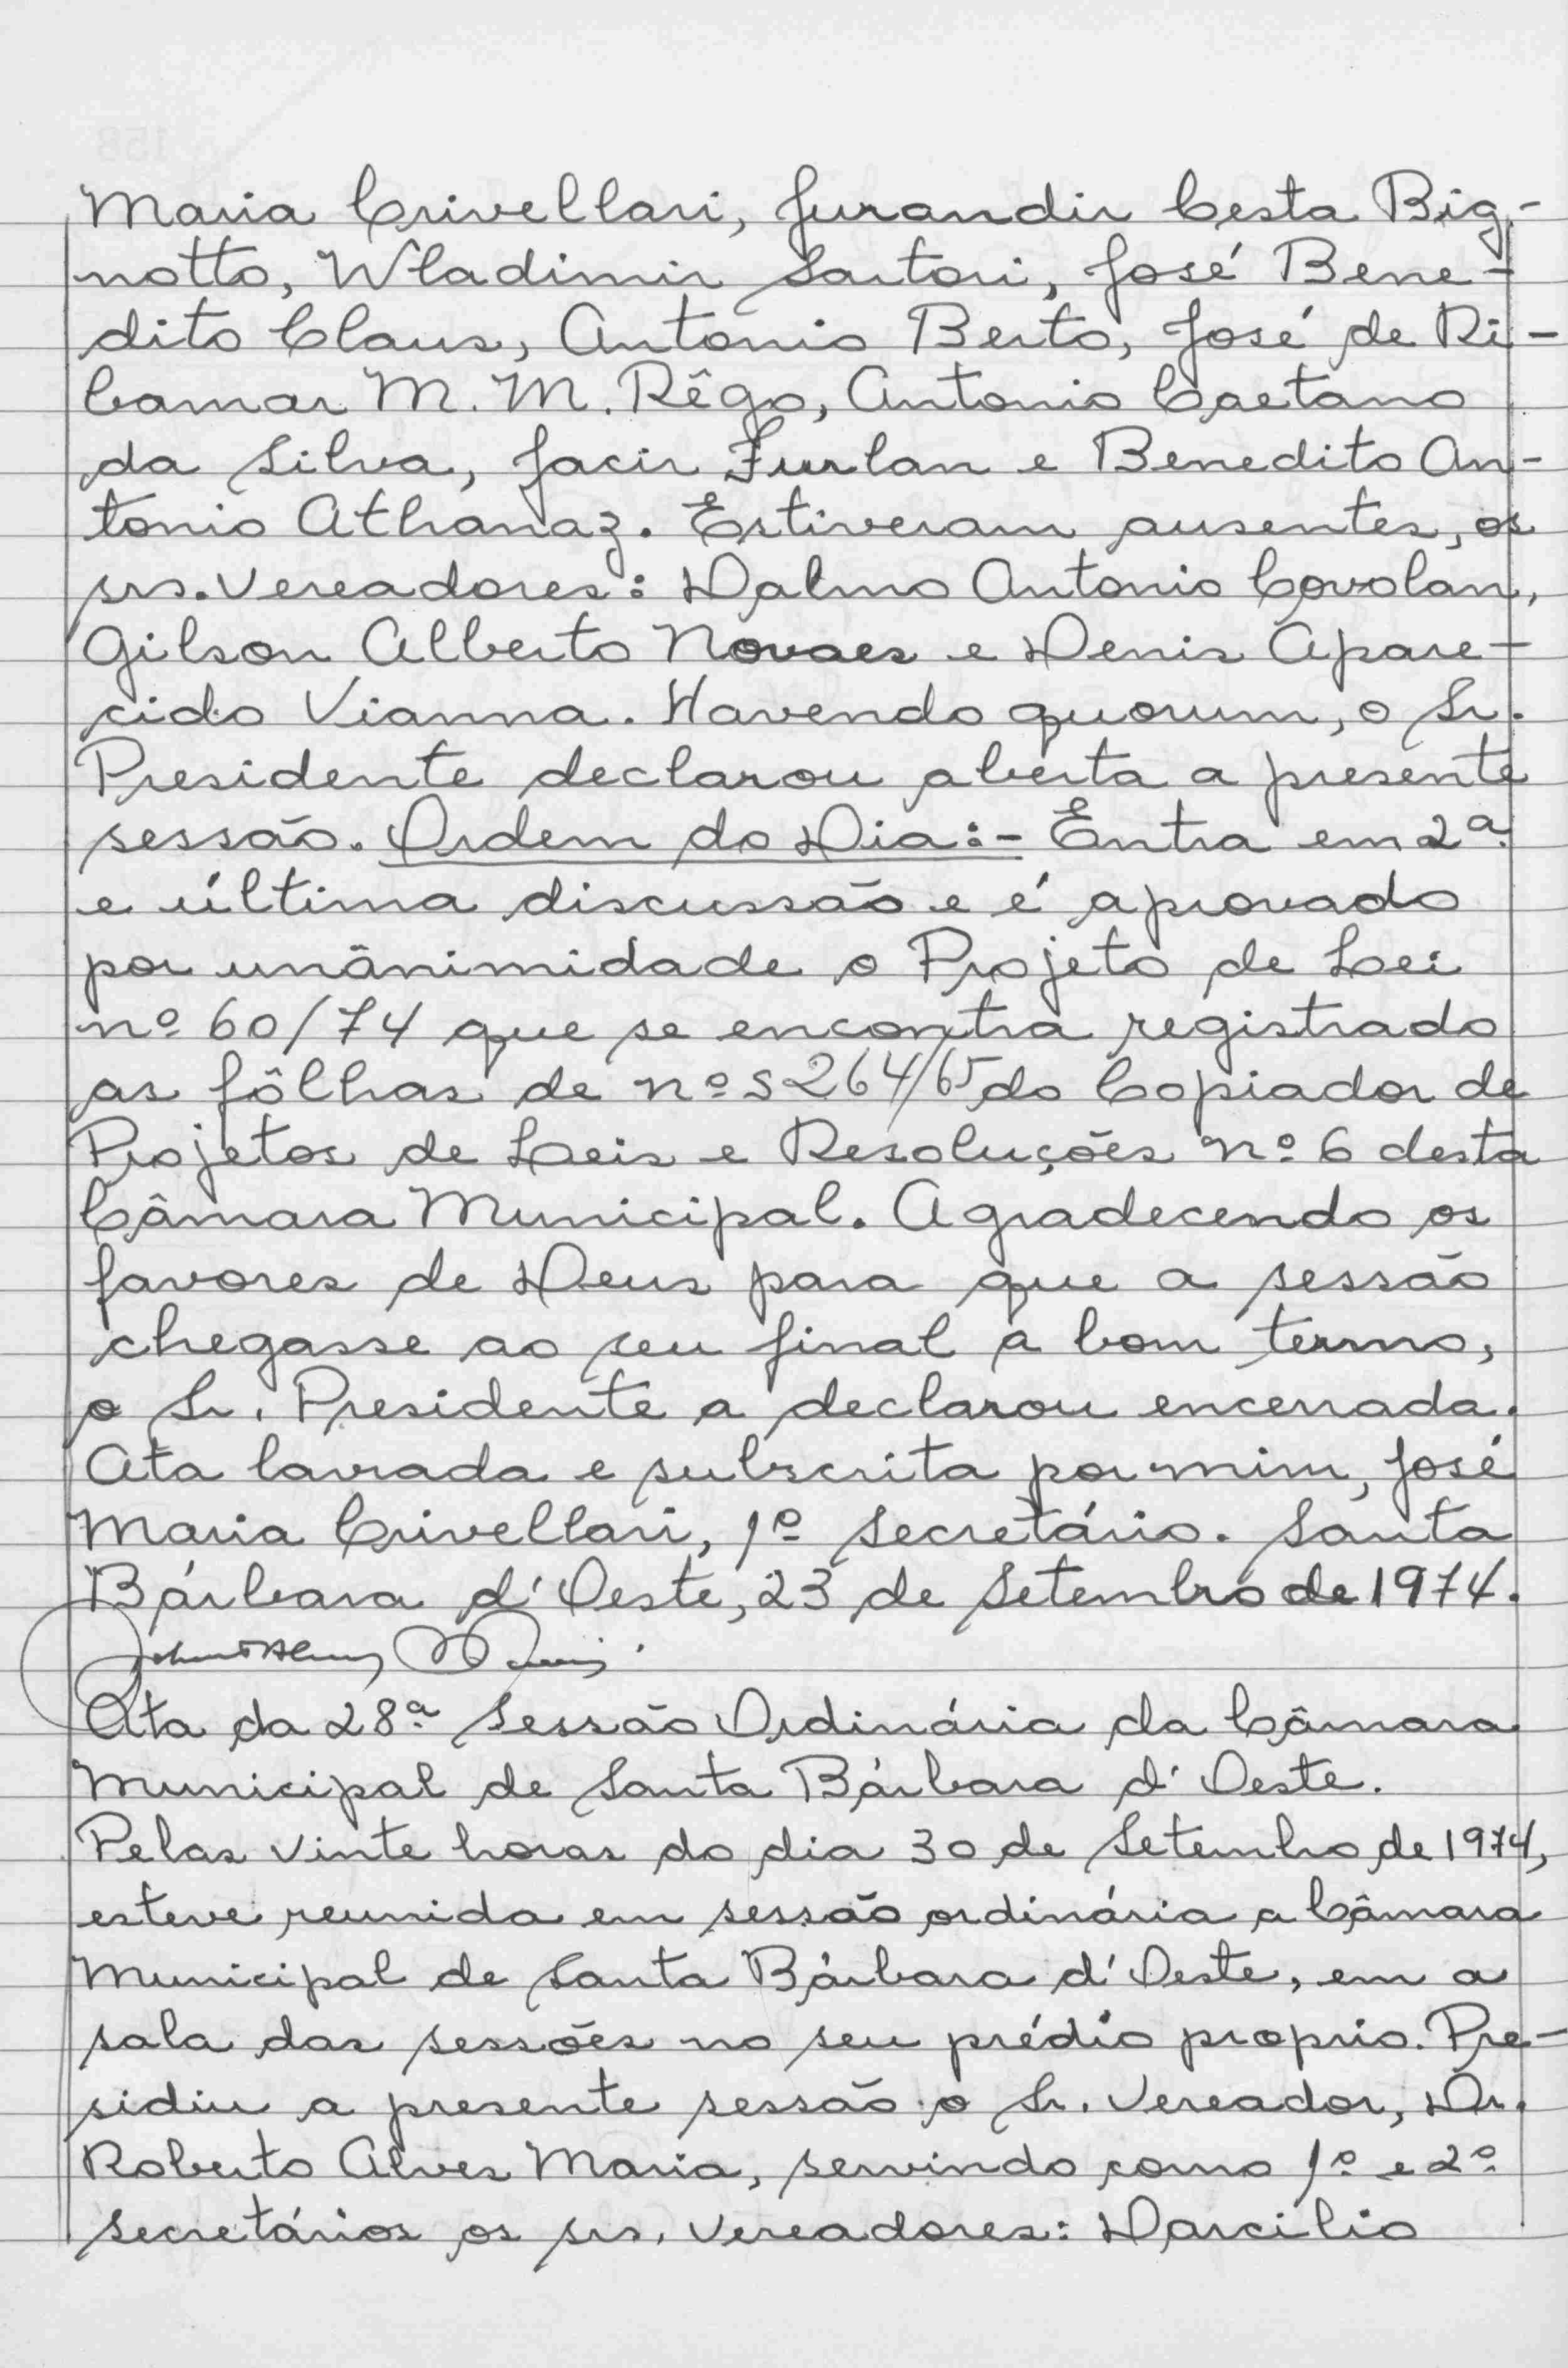 Maria Crivellari, Jurandir Cesta Big-
notto, Wladimir Sartori, José Bene-
dito Claus, Antonio Berto, José de Ri-
bamar M. M. Rêgo, Antonio Caetano
da Silva, Jacir Furlan e Benedito An-
tonio Athanaz. Estiveram ausentes, os
srs. vereadores: Dalmo Antonio Covolan,
Gilson Alberto Novaes e Denis Apare-
cido Vianna. Havendo quorum, o Sr.
Presidente declarou aberta a presente
sessão. Ordem do Dia:- Entra em 2ª
e última discussão e é aprovado
por unânimidade o Projeto de Lei
nº 60/74 que se encontra registrado
as fôlhas de nºs 264/65 do Copiador de
Projetos de Leis e Resoluções nº 6 desta
Câmara Municipal. Agradecendo os
favores de Deus para que a sessão
chegasse ao seu final a bom termo,
o Sr. Presidente a declarou encerrada.
Ata lavrada e subscrita por mim, José
Maria Crivellari, 1º Secretário. Santa
Bárbara d'Oeste, 23 de Setembro de 1974.
Ata da 28ª Sessão Ordinária da Câmara
Municipal de Santa Bárbara d'Oeste.
Pelas vinte horas do dia 30 de Setembro de 1974,
esteve reunida em sessão ordinária a Câmara
Municipal de Santa Bárbara d'Oeste, em a
sala das sessões no seu prédio proprio. Pre-
sidiu a presente sessão o Sr. Vereador, Dr.
Roberto Alves Maria, servindo como 1º e 2º
secretários os srs. vereadores: Darcilio